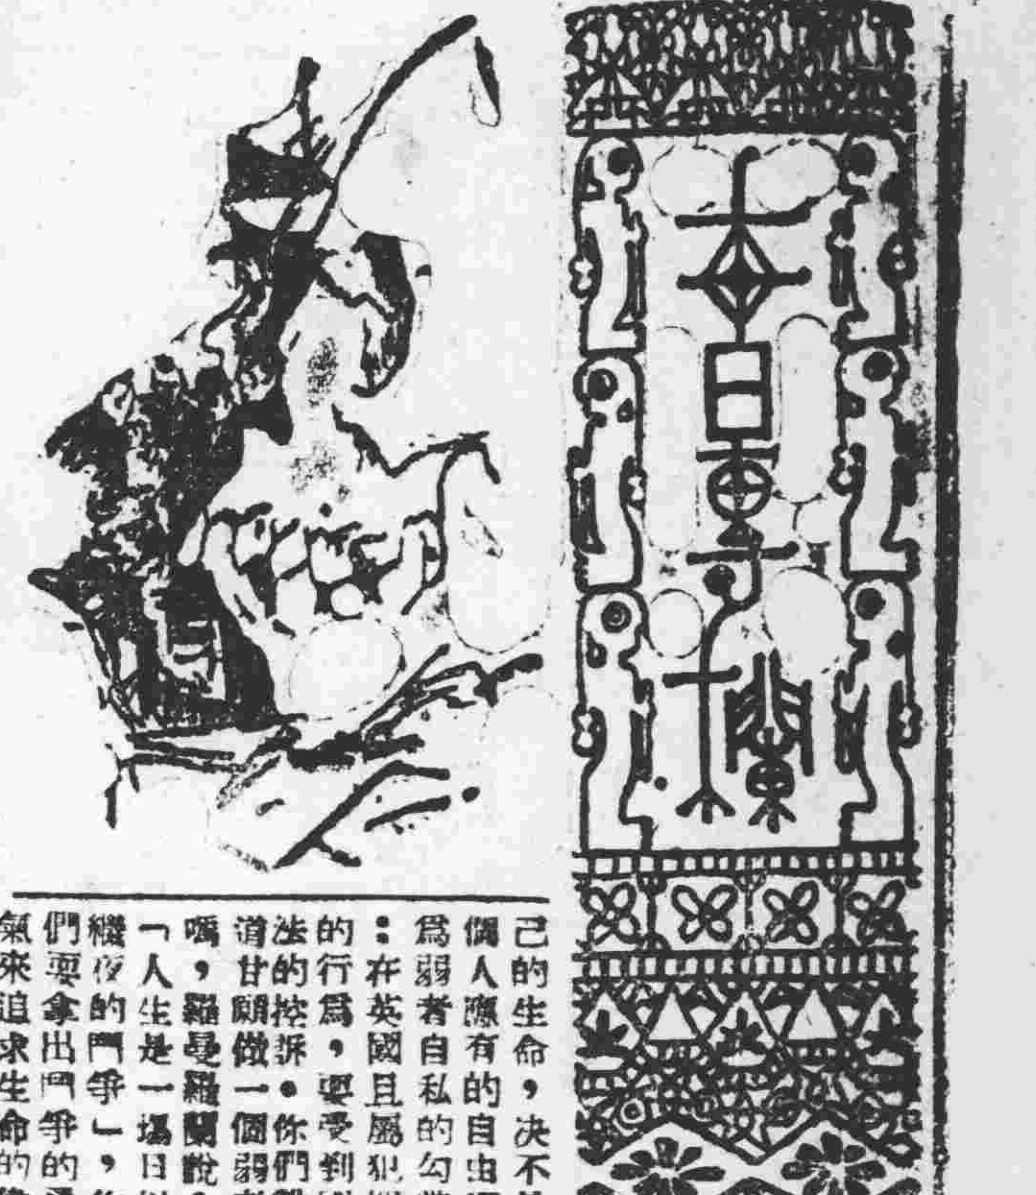 專欄
己的生命，决不
個人應有的自由
爲弱者自私的勾
：在英國且屬犯
的行爲，要受到
法的控訴．你們
道甘願做一個弱
嗎，羅曼羅蘭說
「人生是一場日
繼夜的鬥爭」，
們要拿出鬥爭的
氣來追求生命的